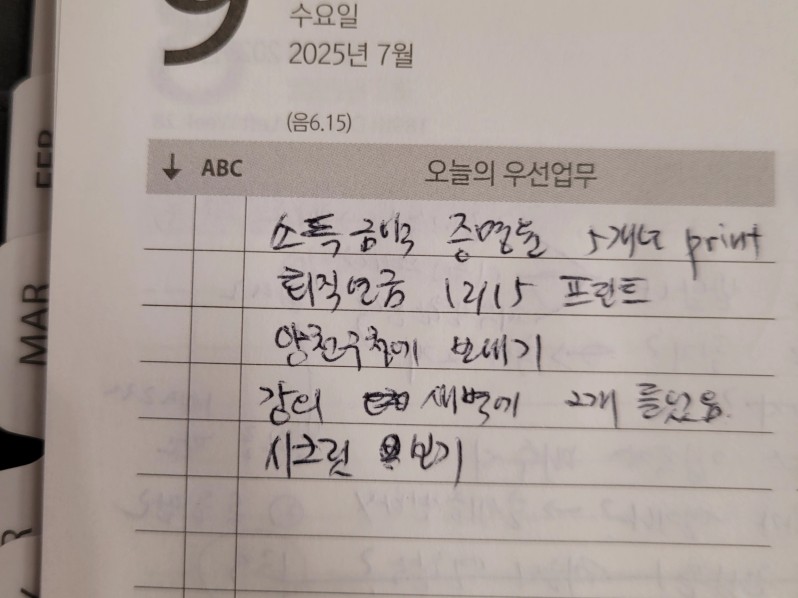 9
수요일
2025년 7월
(음6.15)
↓ ABC 오늘의 우선업무
소득금액 증명들 5개년 print
퇴직연금 12/15 프린트
양천구청에 보내기
강의 새벽에 2개 들었음.
시크릿 보기
FEB
MAR